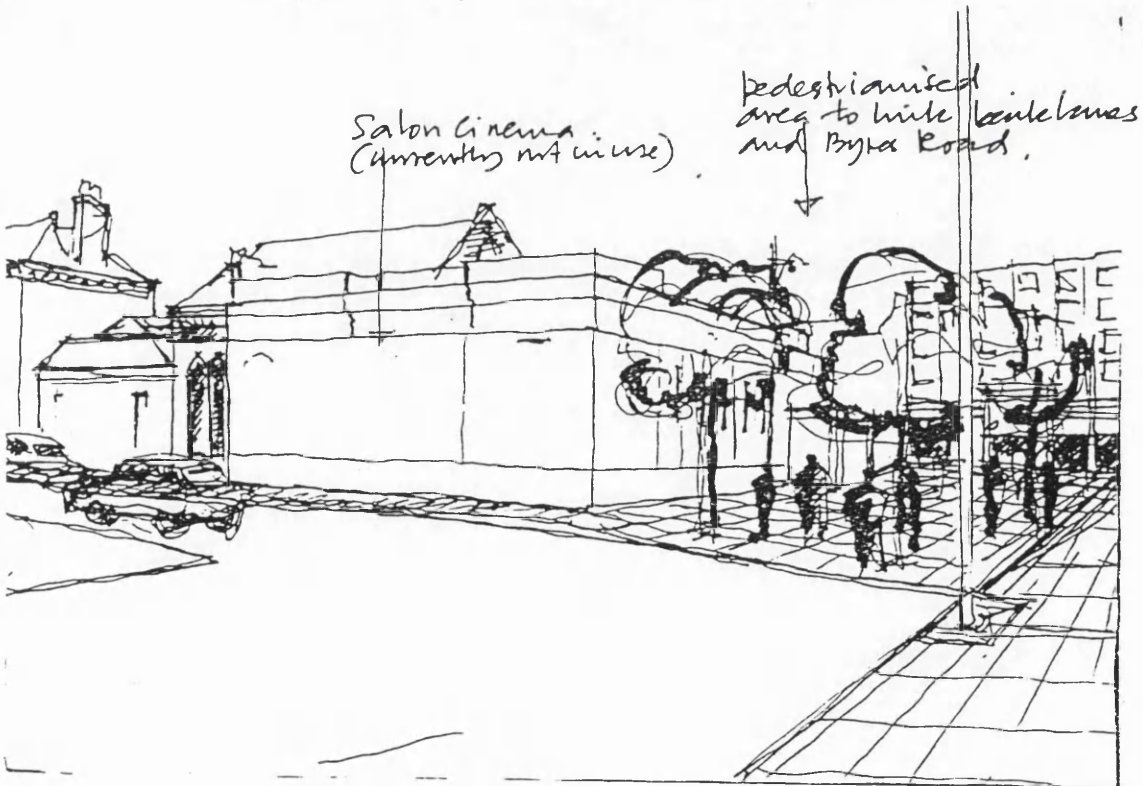 Salon Cinema.
(currently not in use)
pedestrianised
area to link back lanes
and Byres Road.